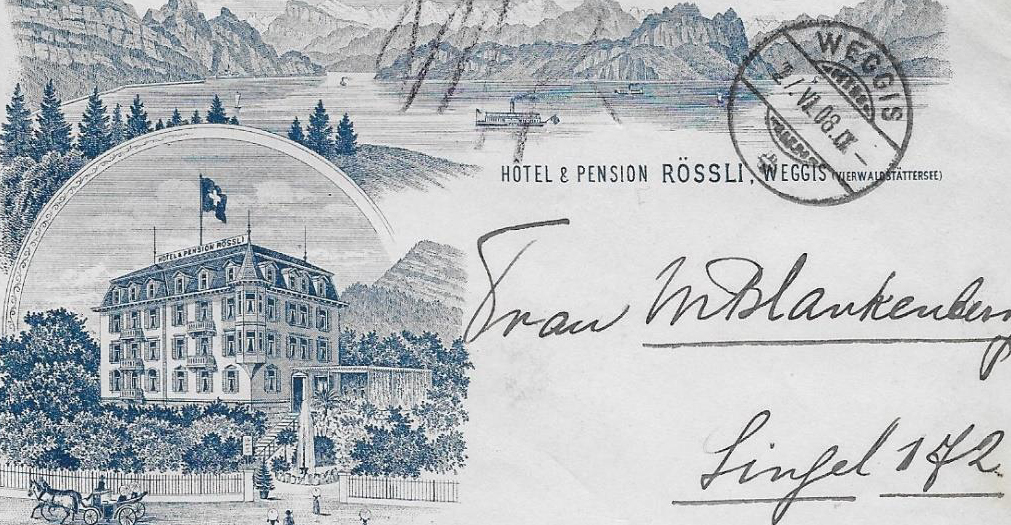 WEGGIS
27.VI.08.IX-
HOTEL & PENSION RÖSSLI, WEGGIS (VIERWALDSTÄTTERSEE)
HOTEL & PENSION RÖSSLI
Frau M Blankenberg
Singel 172